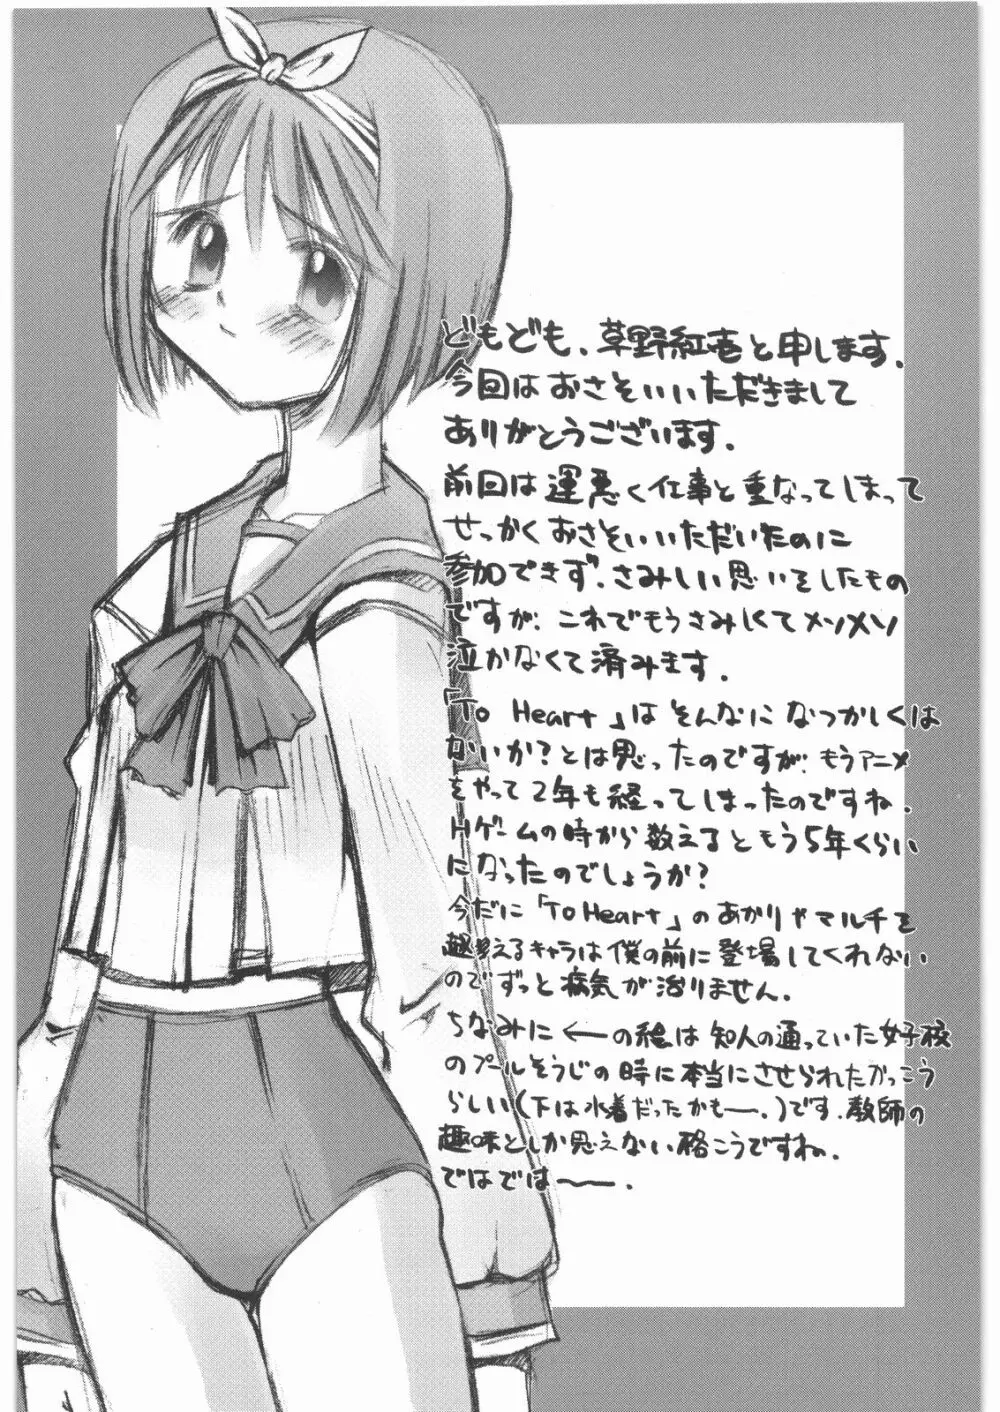 どもども、草野紅壱と申します。
今回はおさそいいただきまして
ありがとうございます。
前回は運悪く仕事と重なってしまって
せっかくおさそいいただいたのに
参加できず、さみしい思いをしたもの
ですが、これでもうさみしくてメソメソ
泣かなくて済みます。
「To Heart」はそんなになつかしくは
ないか?とは思ったのですが、もうアニメ
をやって2年も経ってしまったのですね。
Hゲームの時から数えるともう5年くらい
になったのでしょうか?
今だに「To Heart」のあかりやマルチを
越えるキャラは僕の前に登場してくれない
のでずっと病気が治りません。
ちなみに←の絵は知人の通っていた女子校
のプールそうじの時に本当にさせられたかっこう
らしい(下は水着だったかもー。)です。教師の
趣味としか思えない格こうですね。
ではでは〜。